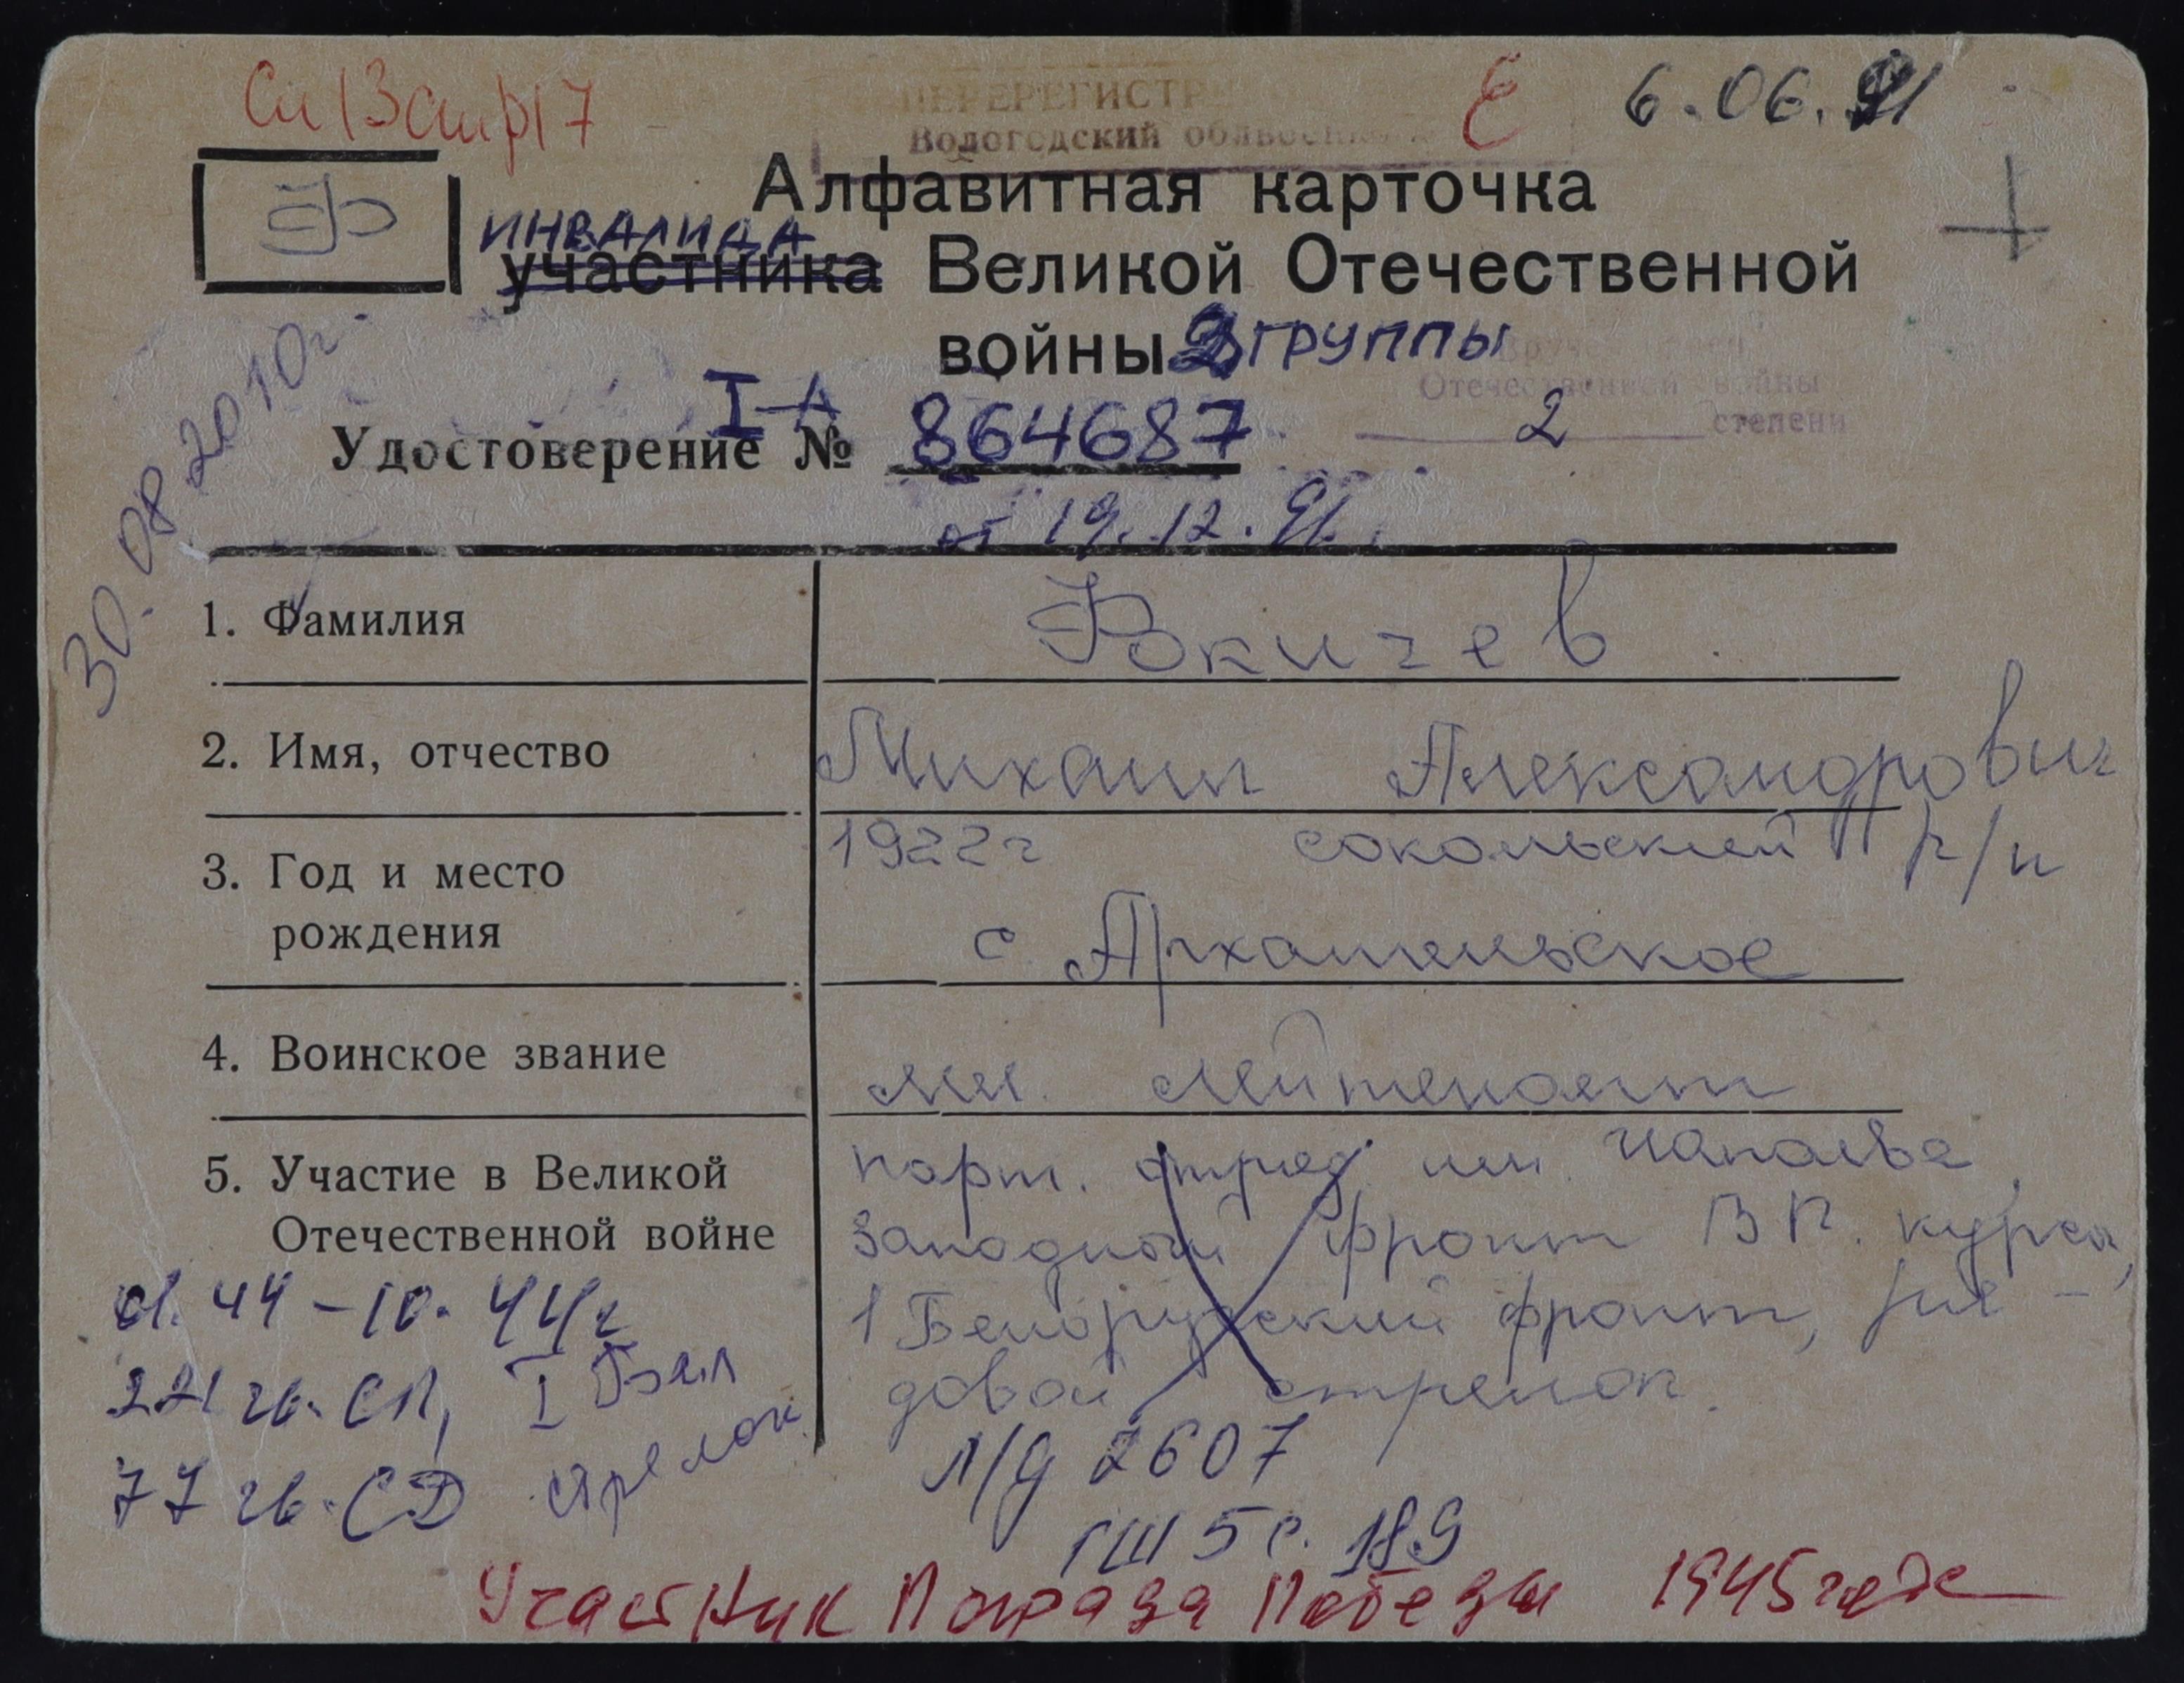 6.06.91
ПЕРЕРЕГИСТР
Вологодский облвоенк
Е
Ф
Алфавитная карточка
инвалида
участника Великой Отечественной
войны 2 группы
Отечественной войны
2 степени
I-А
Удостоверение № 864687
от 19.12.91.
30.08.2010г.
1. Фамилия Фокичев
2. Имя, отчество Михаил Александрович
3. Год и место 1922г сокольский р/н
рождения с. Архангельское
4. Воинское звание мл. лейтенант
5. Участие в Великой парт. отряд им. Чапаева,
Отечественной войне Западный фронт ВП. курсы,
1 Белорусский фронт, ря-
довой стрелок.
44 - 10.44г
221 гв. СП, I Бел
77 гв. СД стрелок.
л/д 2607
ГШ 5 с. 189
Участник Парада Победы 1945 года